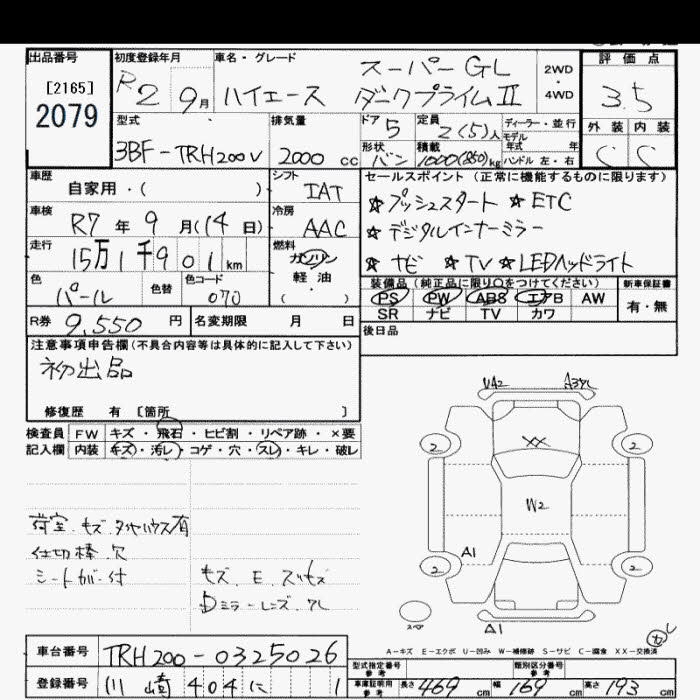 出品番号
[2165]
2079
初度登録年月
R2 9月
車名・グレード
スーパーGL
ハイエース ダークプライムⅡ
2WD
・
4WD
評価点
3.5
外装 内装
C C
型式
3BF-TRH200V
排気量
2000 cc
ドア
5
定員
2(5)人
形状
バン
積載
1000(850)kg
ディーラー・並行
モデル
年式 年
ハンドル 左・右
車歴
自家用・( )
シフト
IAT
車検
R7年9月(14日)
冷房
AAC
走行
15万1千901km
燃料
ガソリン
軽油
( )
色
パール
色替
色コード
070
セールスポイント(正常に機能するものに限ります)
☆プッシュスタート ☆ETC
☆デジタルインナーミラー
☆ナビ ☆TV ☆LEDヘッドライト
装備品(純正品に限り○をつけてください)
PS PW ABS エアB AW
SR ナビ TV カワ
新車保証書
有・無
R券 9,550円
名変期限 月 日
後日品
注意事項申告欄(不具合内容等は具体的に記入して下さい)
初出品
修復歴 有 [箇所 ]
検査員
記入欄
FW キズ・飛石・ヒビ割・リペア跡・×要
内装 キズ・汚レ・コゲ・穴・スレ・キレ・破レ
荷室.キズ タイヤハウス有
仕切棒.穴
シートカバー付
キズ.E.スリキズ
Dミラーレンズ.ワレ
U42 A3ワレ
2 2
XX
W2
A1
2 2
スペア
A1
A-キズ E-エクボ U-凹み W-補修跡 S-サビ C-腐食 XX-交換済
車台番号
TRH200-0325026
登録番号
川崎 404 に 1
型式指定番号
参考
類別区分番号
参考
車庫証明用
参考
長さ 469cm 幅 169cm 高さ 193cm